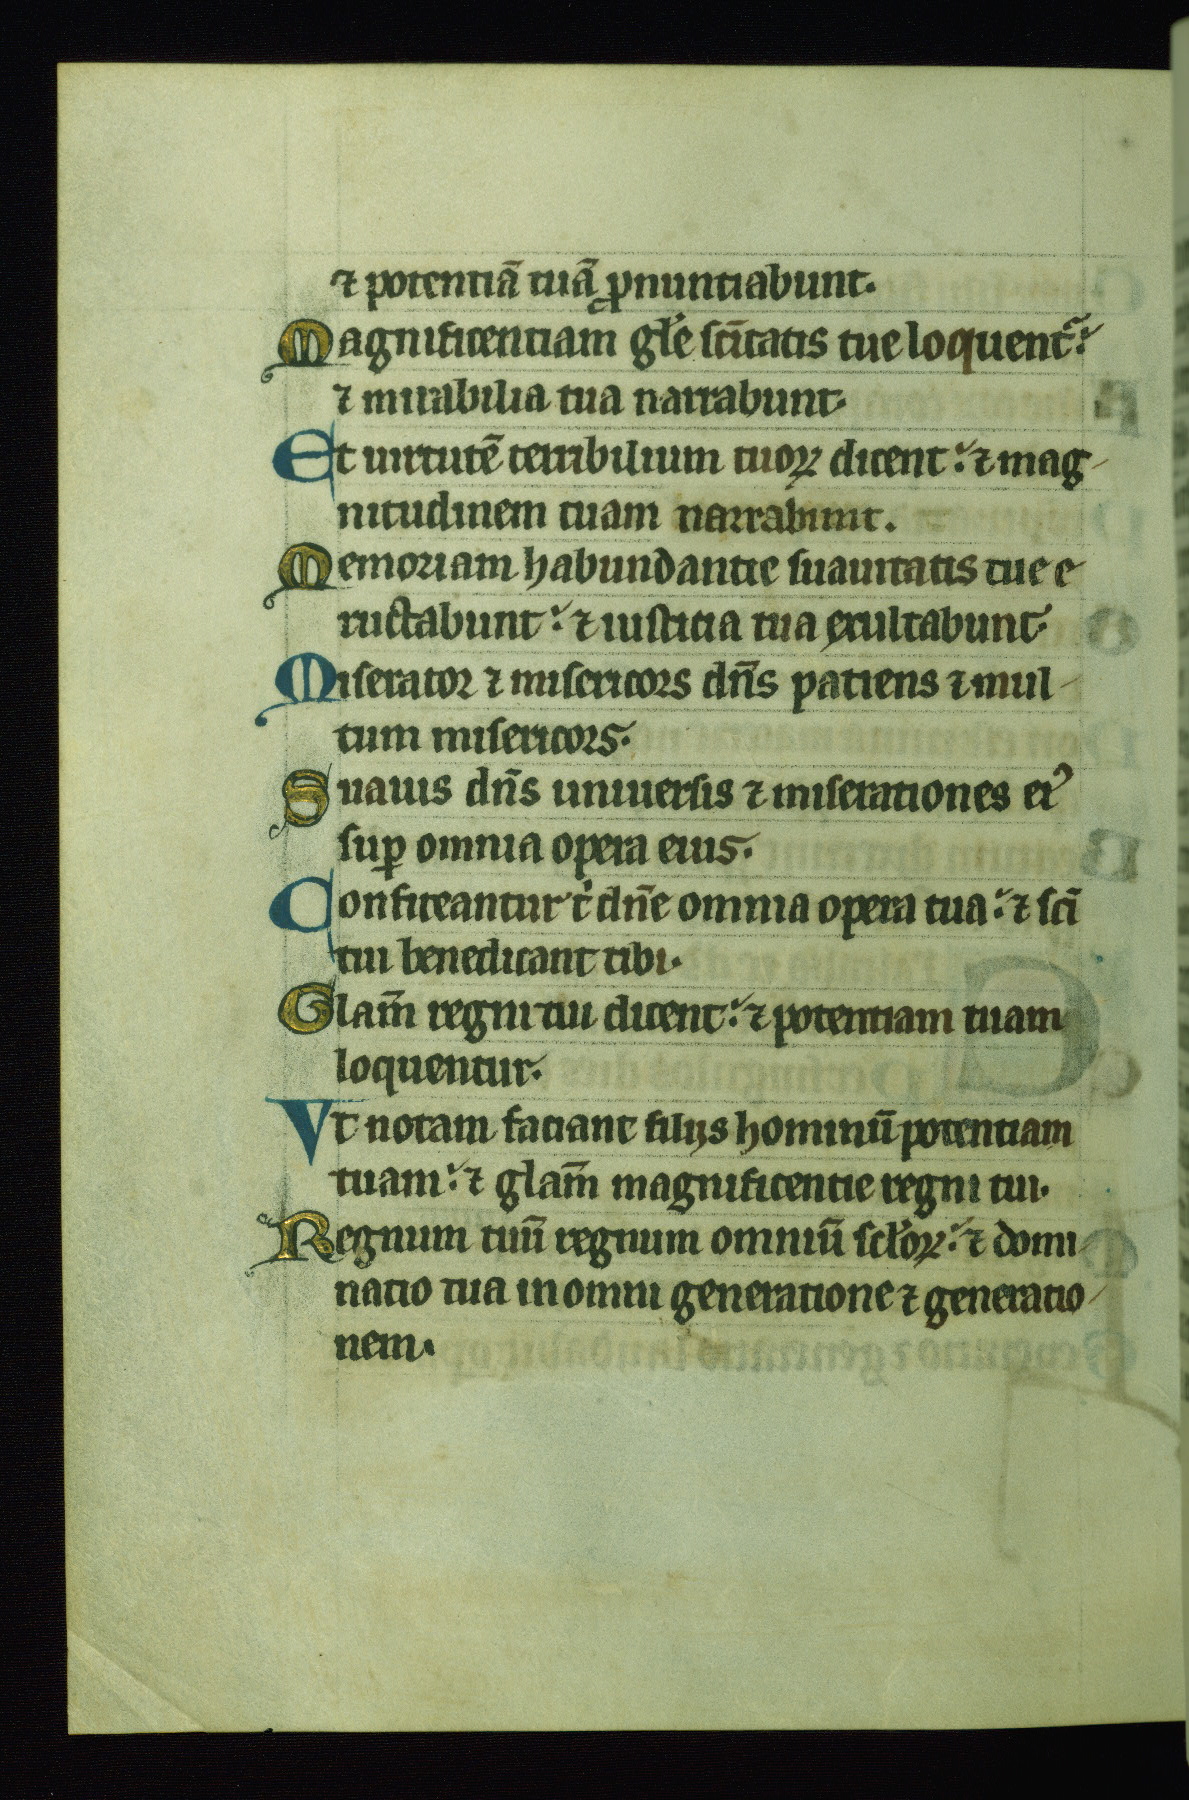 ⁊ potentiā tuā ꝓnuntiabunt.
Magnificentiam gl̄e sc̄itatis tue loquent᷑:
⁊ mirabilia tua narrabunt.
Et uirtutē terribilium tuoꝝ dicent: ⁊ mag-
nitudinem tuam narrabunt.
Memoriam habundantie suauitatis tue e-
ructabunt: ⁊ iusticia tua exultabunt.
Miserator ⁊ misericors dn̄s patiens ⁊ mul-
tum misericors.
Suauis dn̄s uniuersis ⁊ miserationes eiꝰ
suꝑ omnia opera eius.
Confiteantur t' dn̄e omnia opera tua: ⁊ sc̄i
tui benedicant tibi.
Glam̄ regni tui dicent: ⁊ potentiam tuam
loquentur.
Vt notam faciant filijs hominū potentiam
tuam: ⁊ glam̄ magnificentie regni tui.
Regnum tuū regnum omniū sc̄loꝝ: ⁊ domi-
natio tua in omni generatione ⁊ generatio-
nem.